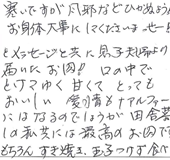 寒いですが風邪などひかぬよう
お身体大事にしてくださいませ
とメッセージと共に息子夫婦より
届いたお肉!! 口の中で
とけてゆく甘くて とっても
おいしい 愛情もナマルフー
にはなるのでしょうか 田舎暮
しの私共には最高のお肉です
もちろん すき焼き、玉子つけ食べ